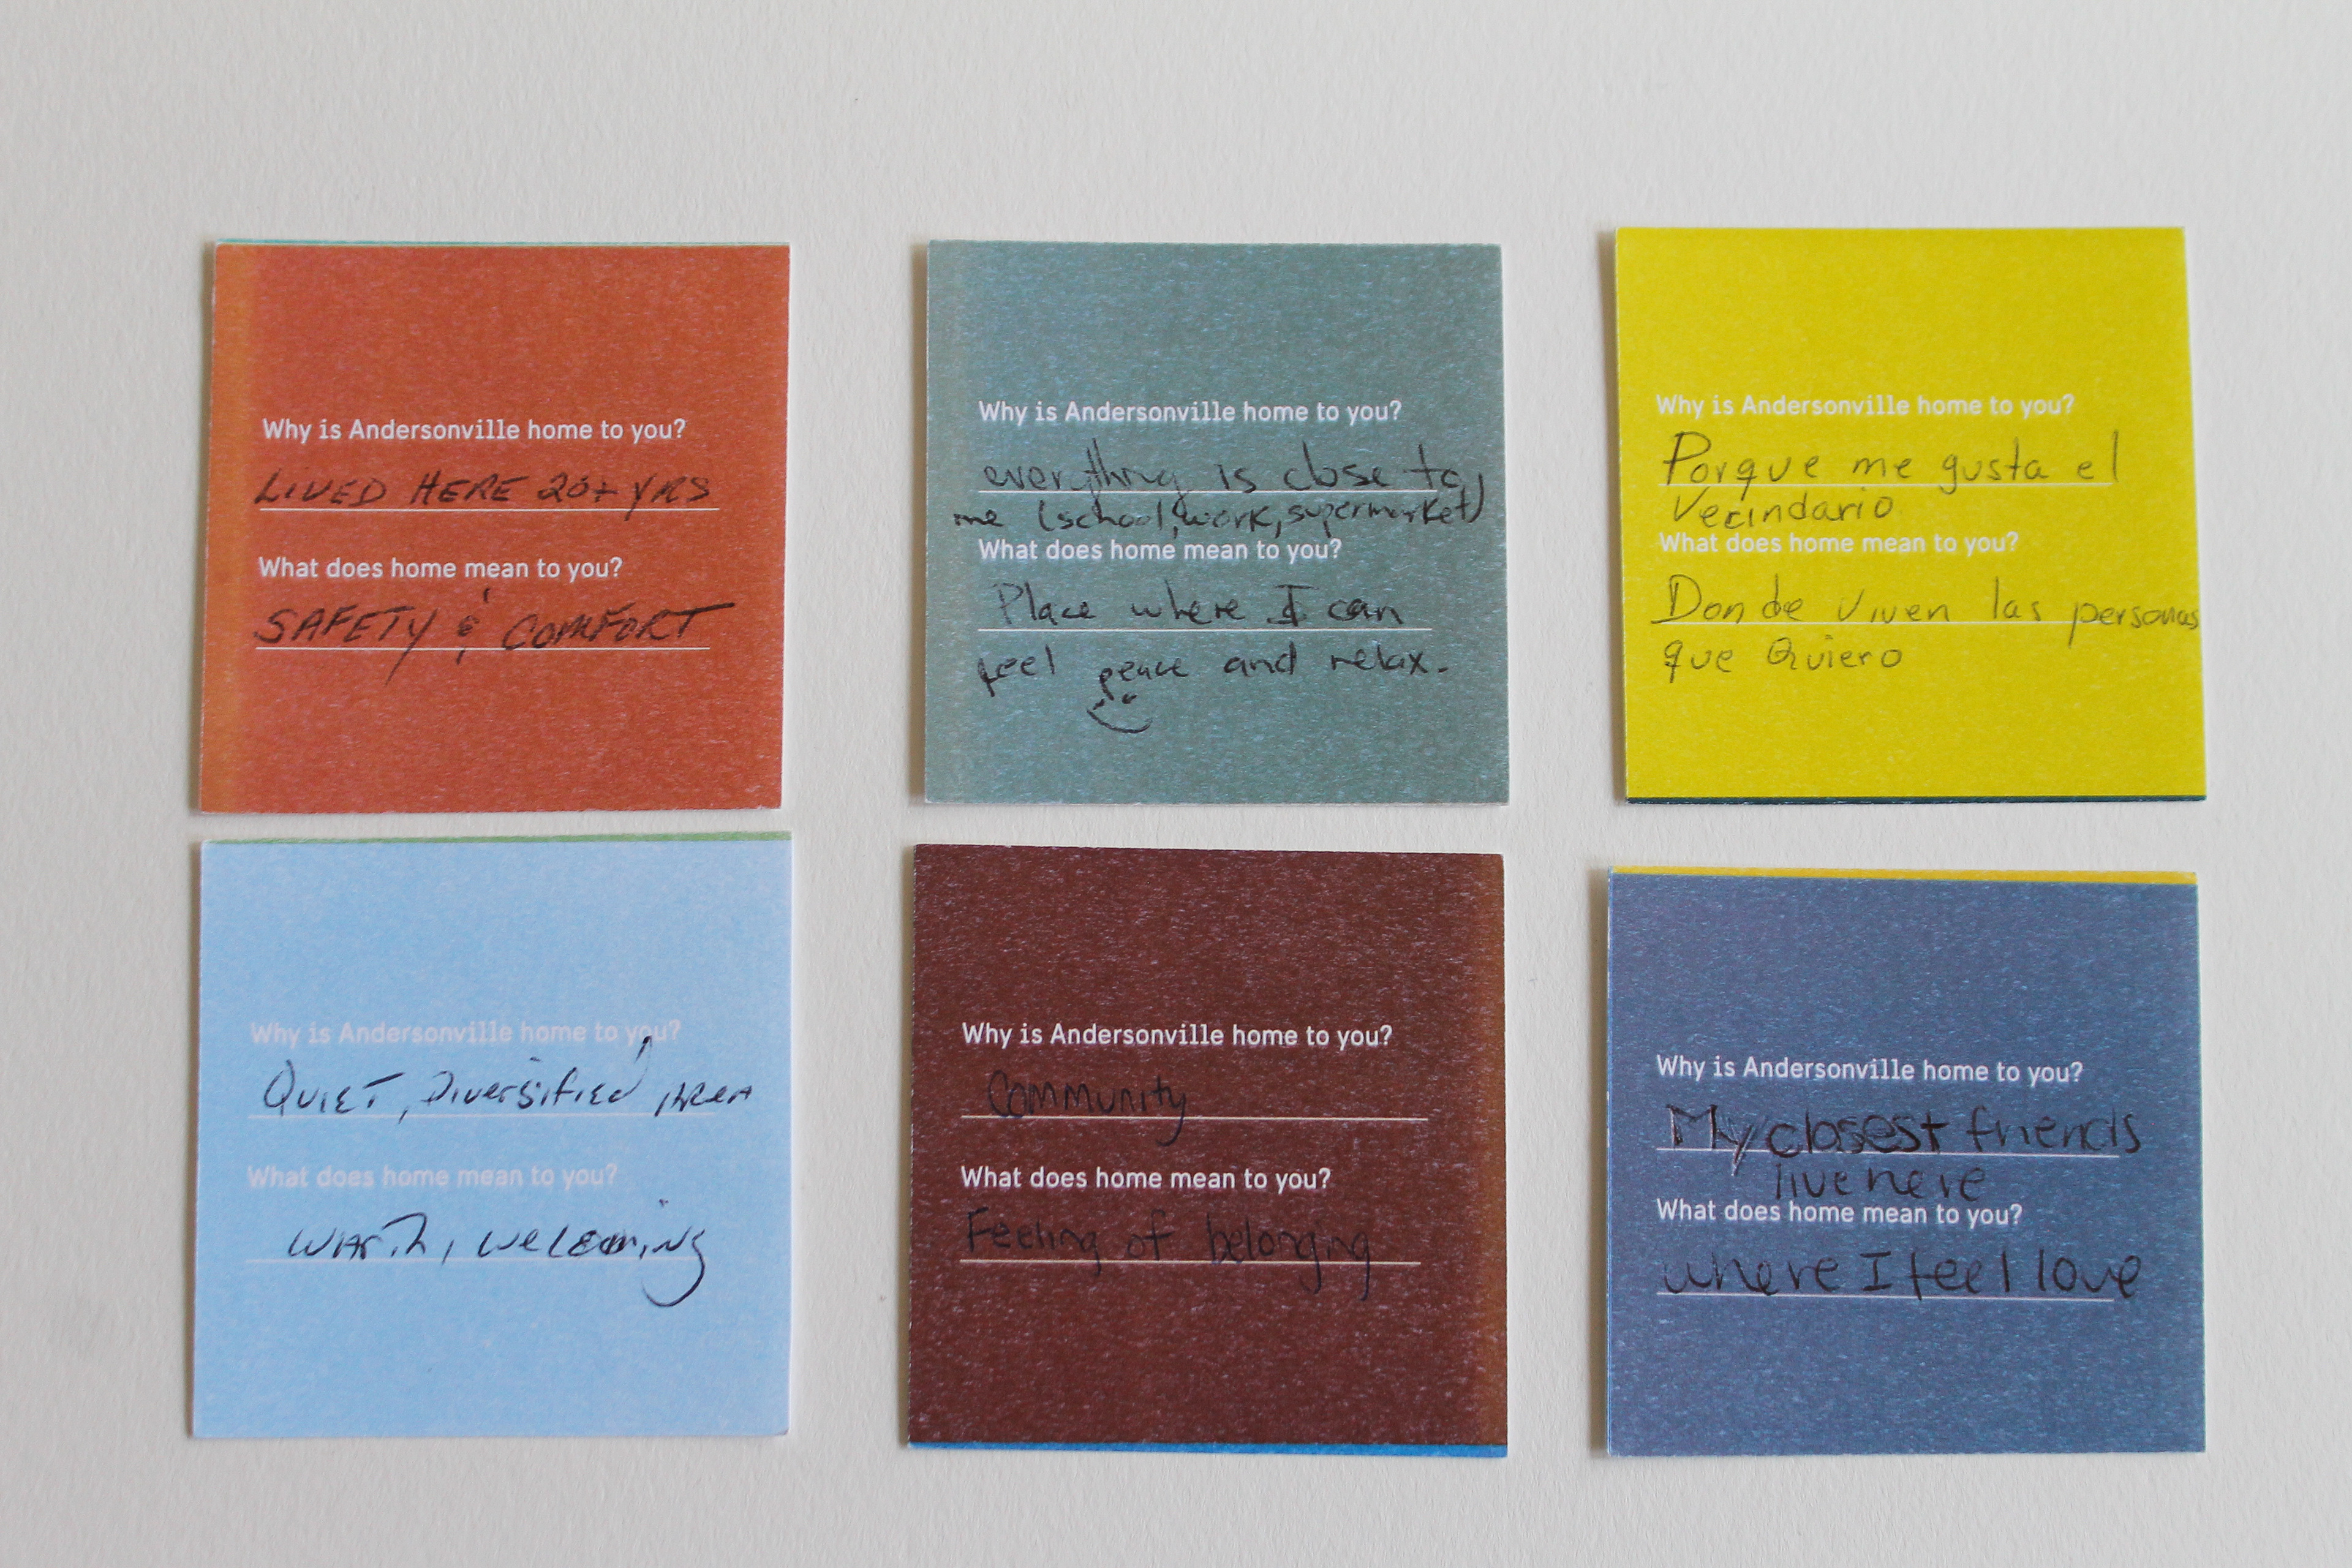 Why is Andersonville home to you?
LIVED HERE 20+ YRS
What does home mean to you?
SAFETY & COMFORT
Why is Andersonville home to you?
everything is close to
me (school, work, supermarket)
What does home mean to you?
Place where I can
feel peace and relax.
Why is Andersonville home to you?
Porque me gusta el
Vecindario
What does home mean to you?
Donde viven las personas
que Quiero
Why is Andersonville home to you?
QUIET, Diversified AREA
What does home mean to you?
welcoming
Why is Andersonville home to you?
Community
What does home mean to you?
Feeling of belonging
Why is Andersonville home to you?
My closest friends
live here
What does home mean to you?
where I feel love